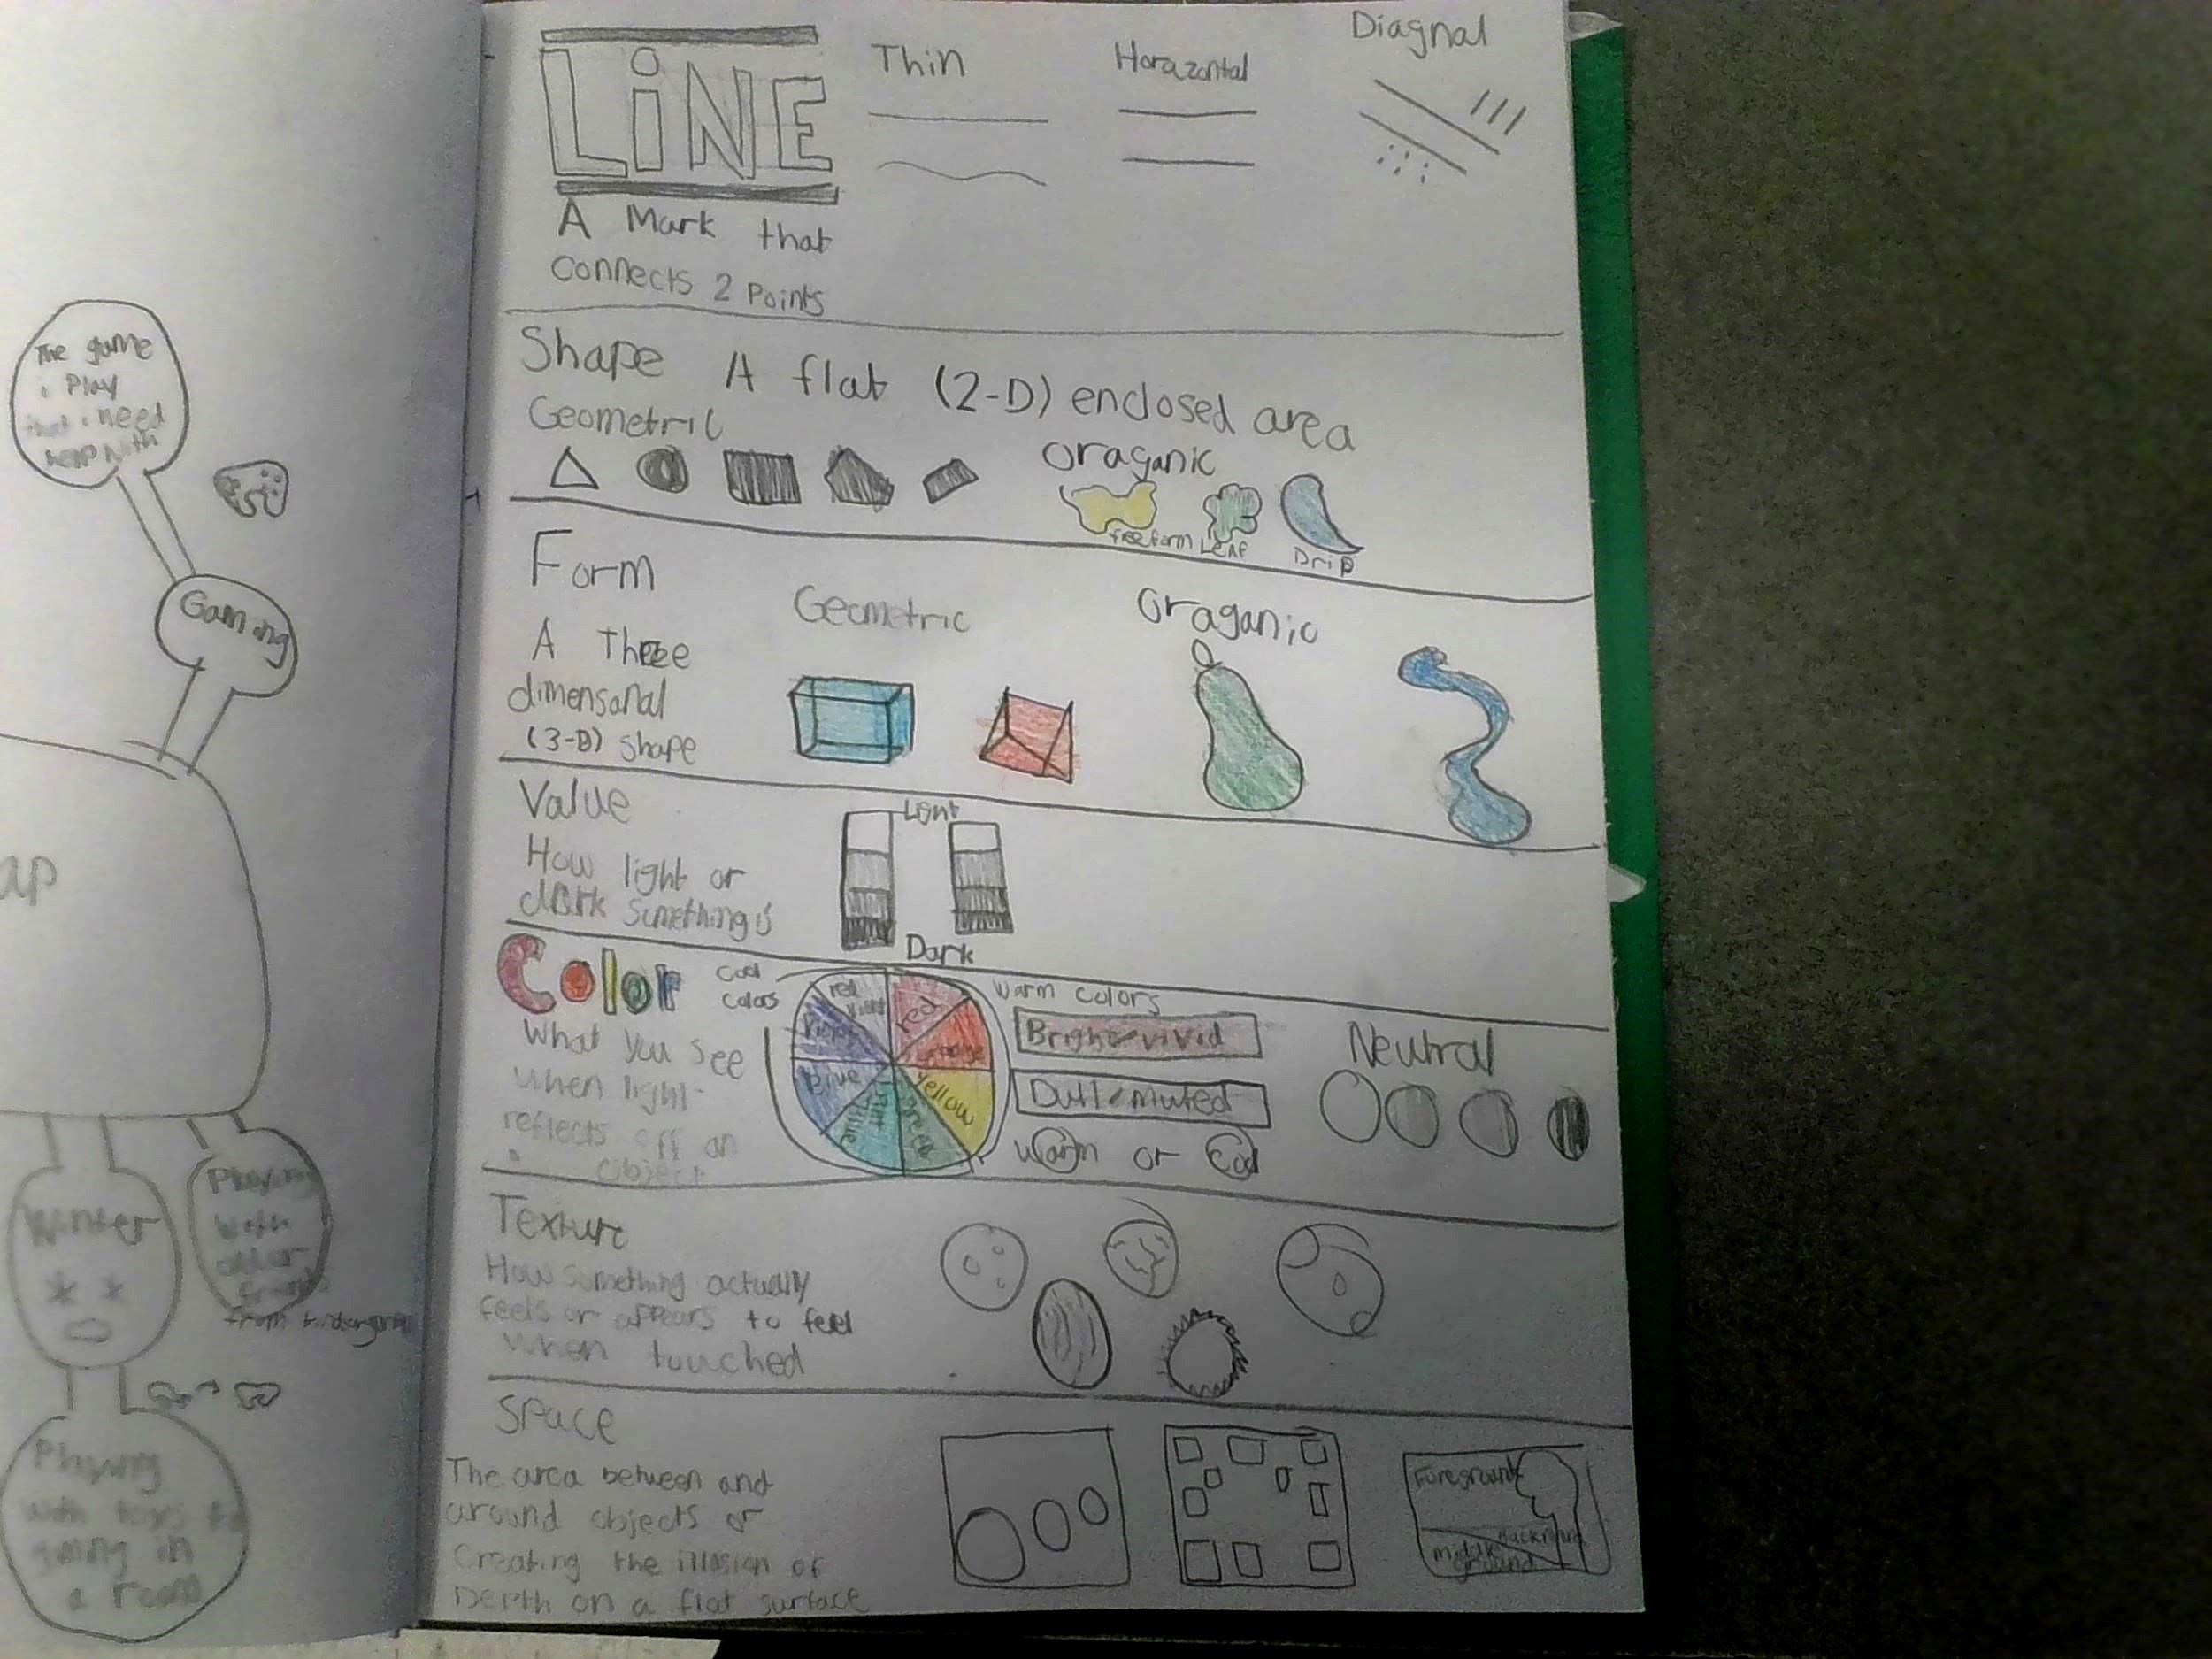 The game
i Play
that i need
help with
Gaming
ap
Winter
Playing
with
from kindergarten
Playing
with toys to
gaming in
a room
LiNE
Thin
Horazontal
Diagnal
A Mark that
connects 2 Points
Shape A flat (2-D) enclosed area
Geometric
Oraganic
freeform Leaf
Drip
Form
A Three
dimensanal
(3-D) shape
Geometric
Oraganic
Value
How light or
dark something is
Light
Dark
Color
What you see
When light
reflects off an
object
Cool
colors
Warm colors
red
violet
red
orange
Violet
Blue
Yellow
Green
Blue
Bright/vivid
Dull/muted
Warm or Cool
Neutral
Texture
How something actually
feels or appears to feel
When touched
Space
The area between and
around objects or
Creating the illusion of
Depth on a flat surface
Foreground
middle
ground